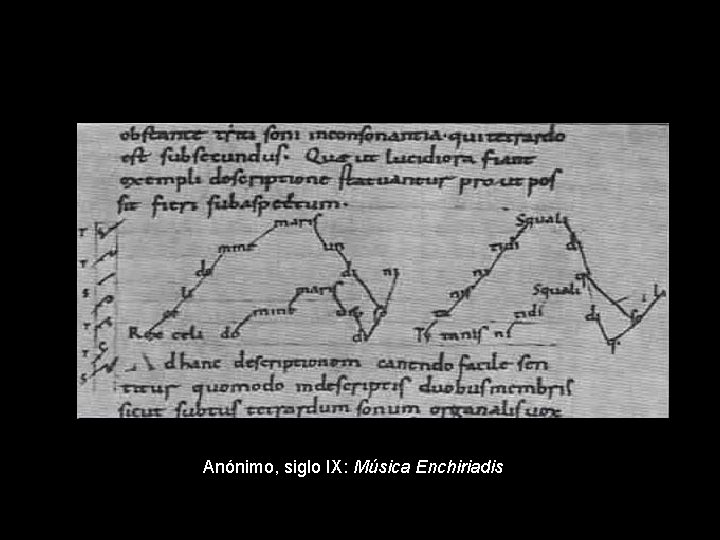 obstante triti soni inconsonantia. qui tetrardo
est subsecundus. Quae ut lucidiora fiant
exempli descriptione statuantur prout pos
sit fieri sub aspectum.
maris Squali
mine un di tudi di
do maris di ns ni Squali
li mine ndi
Rex celi do Te mnis ni
d hanc descriptionem canendo facile sen
titur quomodo in descriptis duobus membris
sicut subtus tetrardum sonum organalis vox
Anónimo, siglo IX: Música Enchiriadis